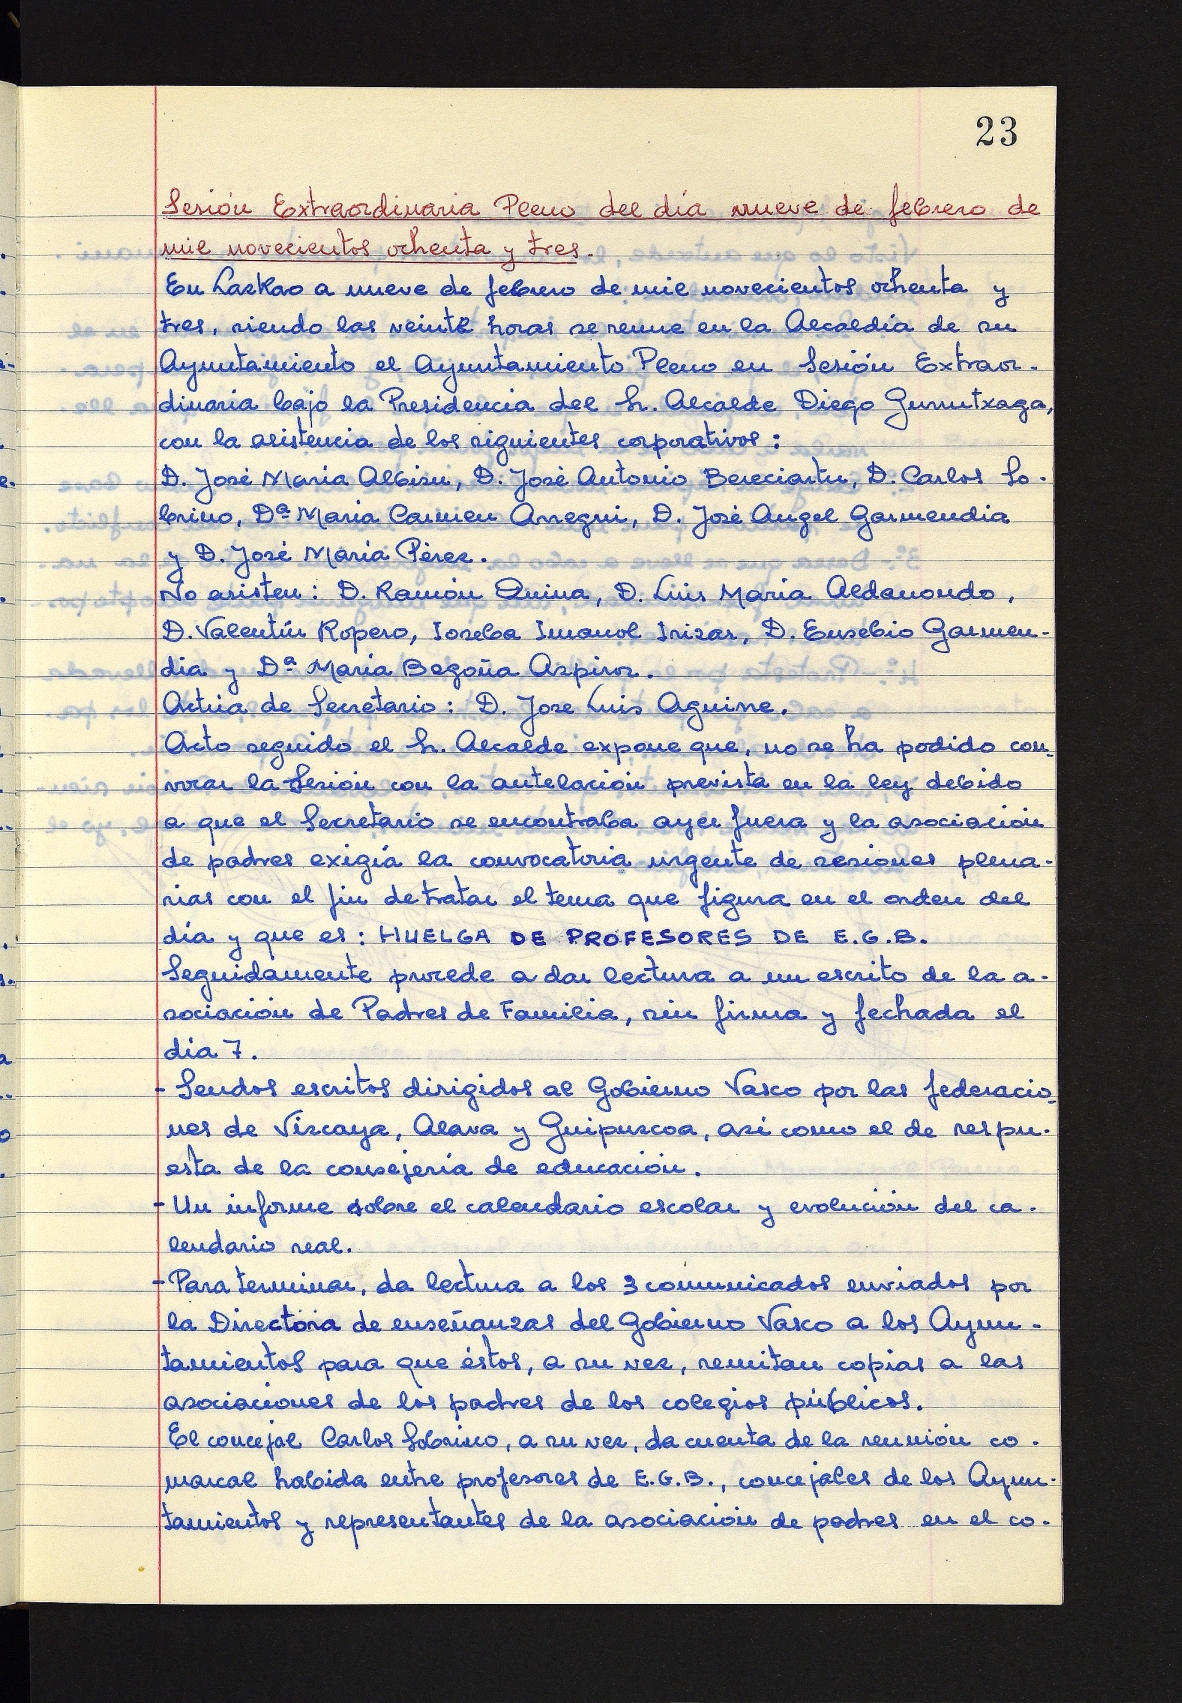 23
Sesión Extraordinaria Pleno del día nueve de febrero de
mil novecientos ochenta y tres.
En Lazkao a nueve de febrero de mil novecientos ochenta y
tres, siendo las veinte horas se reune en la Alcaldía de su
Ayuntamiento el Ayuntamiento Pleno en Sesión Extraor-
dinaria bajo la Presidencia del Sr. Alcalde Diego Gurrutxaga,
con la asistencia de los siguientes corporativos:
D. José Maria Albisu, D. José Antonio Bereciartu, D. Carlos So-
brino, Dª Maria Carmen Arregui, D. José Angel Garmendia
y D. José María Pérez.
No asisten: D. Ramón Quina, D. Luis Maria Aldanondo,
D. Valentín Ropero, Ioseba Imanol Irizar, D. Eusebio Garmen-
dia y Dª María Begoña Azpiroz.
Actúa de Secretario: D. Jose Luis Aguirre.
Acto seguido el Sr. Alcalde expone que, no se ha podido con-
vocar la Sesión con la antelación prevista en la ley debido
a que el Secretario se encontraba ayer fuera y la asociación
de padres exigía la convocatoria urgente de sesiones plena-
rias con el fin de tratar el tema que figura en el orden del
día y que es: HUELGA DE PROFESORES DE E.G.B.
Seguidamente procede a dar lectura a un escrito de la a-
sociación de Padres de Familia, sin firma y fechada el
día 7.
- Sendos escritos dirigidos al Gobierno Vasco por las federacio-
nes de Vizcaya, Alava y Guipuzcoa, asi como el de respu-
esta de la consejería de educación.
- Un informe sobre el calendario escolar y evolución del ca-
lendario real.
- Para terminar, da lectura a los 3 comunicados enviados por
la Directora de enseñanzas del Gobierno Vasco a los Ayun-
tamientos para que éstos, a su vez, remitan copias a las
asociaciones de los padres de los colegios públicos.
El concejal Carlos Sobrino, a su vez, da cuenta de la reunión co-
marcal habida entre profesores de E.G.B., concejales de los Ayun-
tamientos y representantes de la asociación de padres en el co-